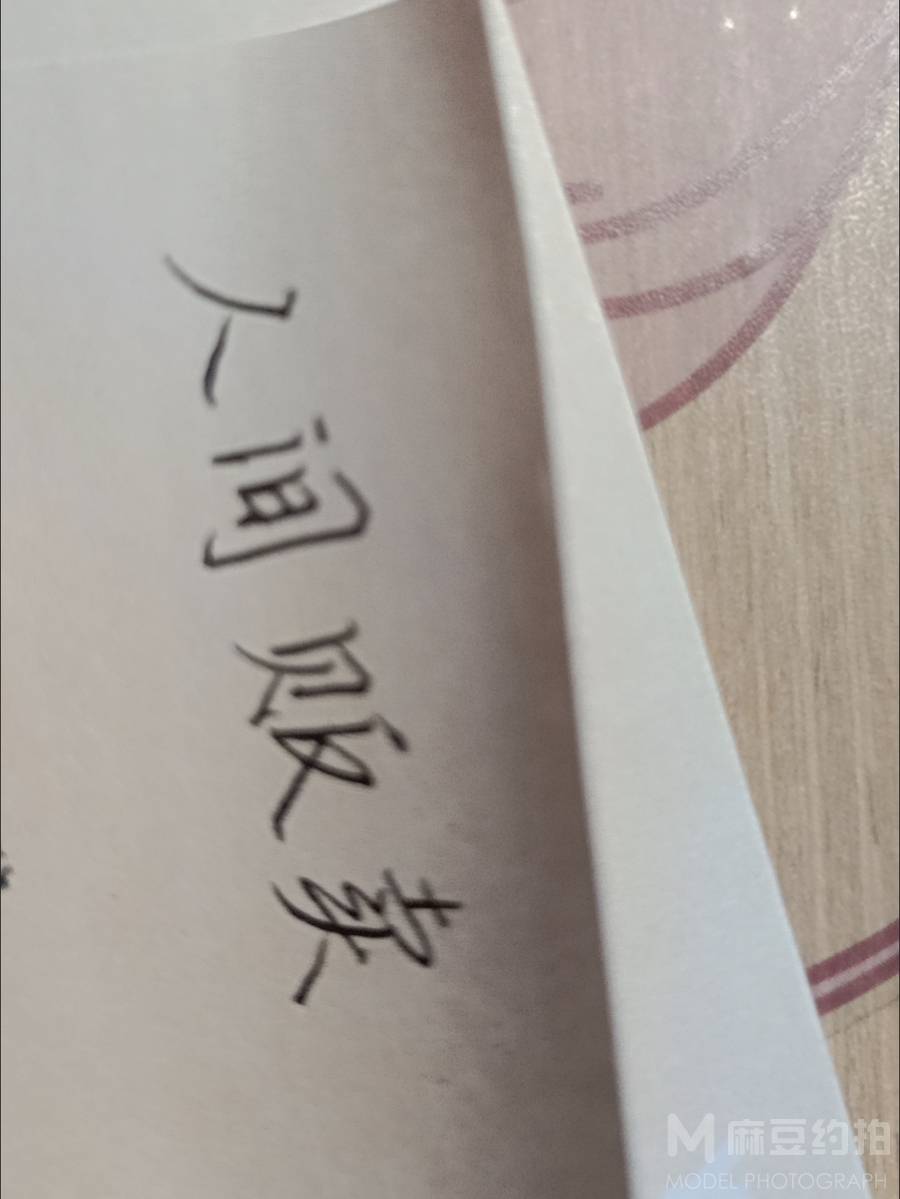 人间贩卖
麻豆约拍
MODEL PHOTOGRAPH